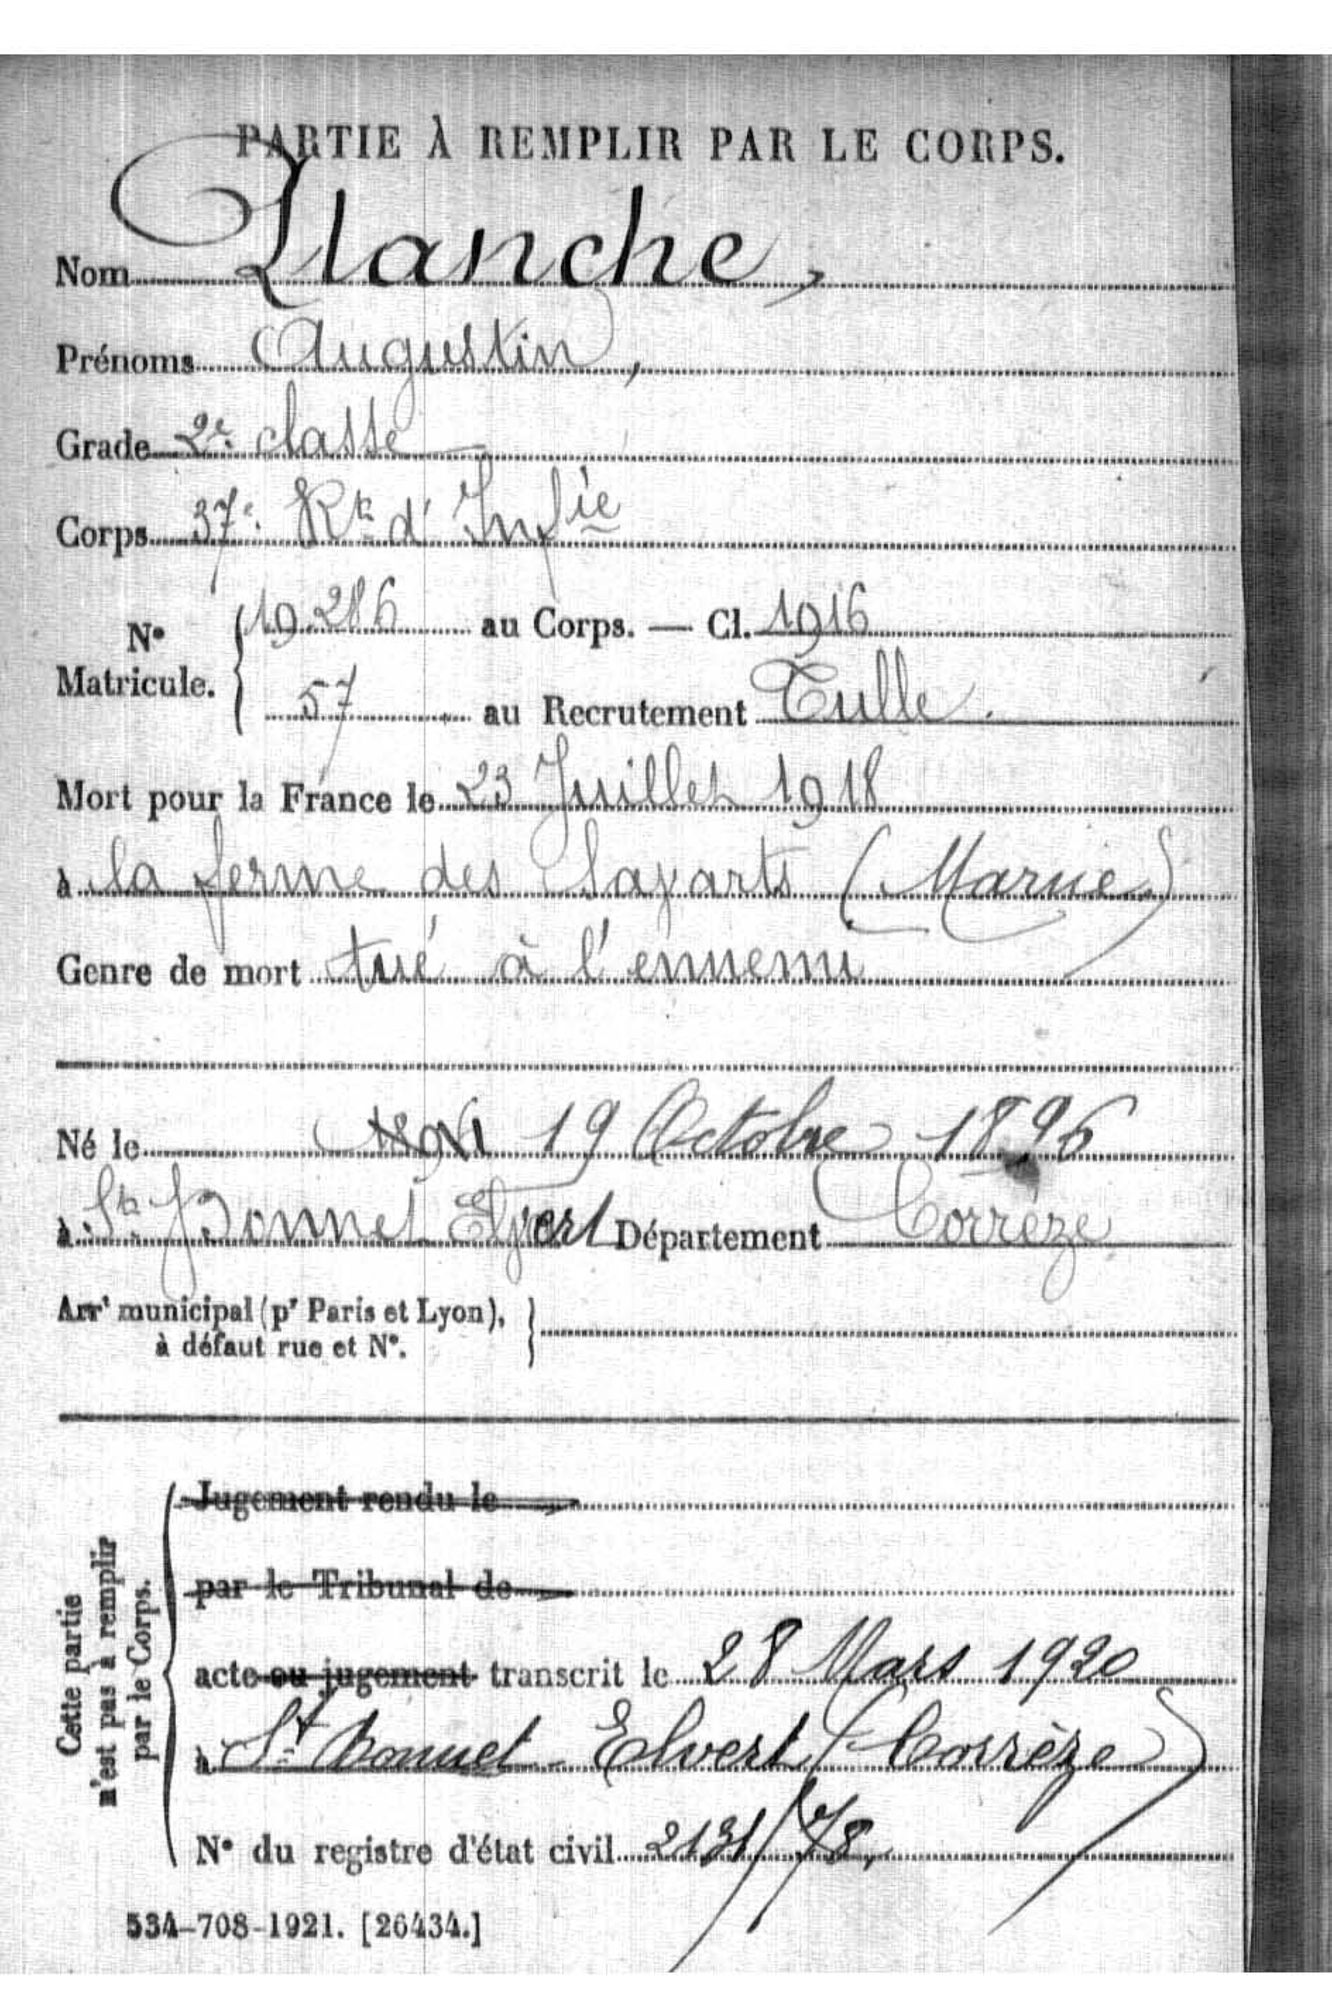 PARTIE À REMPLIR PAR LE CORPS.
Nom Planche,
Prénoms Augustin,
Grade 2e classe
Corps 37e Rt d'Infie
No Matricule. 19.286 au Corps. — Cl. 1916
57 au Recrutement Tulle.
Mort pour la France le 23 Juillet 1918
à la ferme des Sayarts (Marne)
Genre de mort tué à l'ennemi
Né le 19 Octobre 1896
à St Bonnet Elvert Département Corrèze
Arrt municipal (pr Paris et Lyon),
à défaut rue et No.
Cette partie
n'est pas à remplir
par le Corps.
Jugement rendu le
par le Tribunal de
acte ou jugement transcrit le 28 Mars 1920
à St Bonnet-Elvert (Corrèze)
No du registre d'état civil 2131/78.
534-708-1921. [26434.]